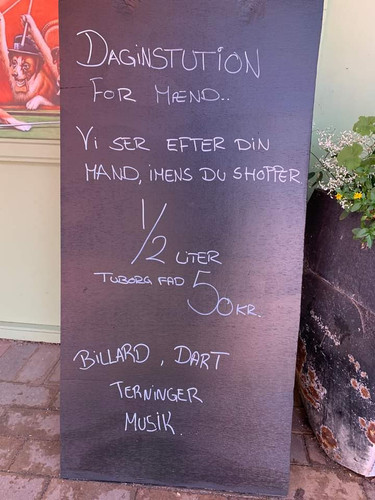 DAGINSTUTION
FOR MÆND..
VI SER EFTER DIN
MAND, IMENS DU SHOPPER
1/2 LITER
TUBORG FAD 50 KR.
BILLARD, DART
TERNINGER
MUSIK.